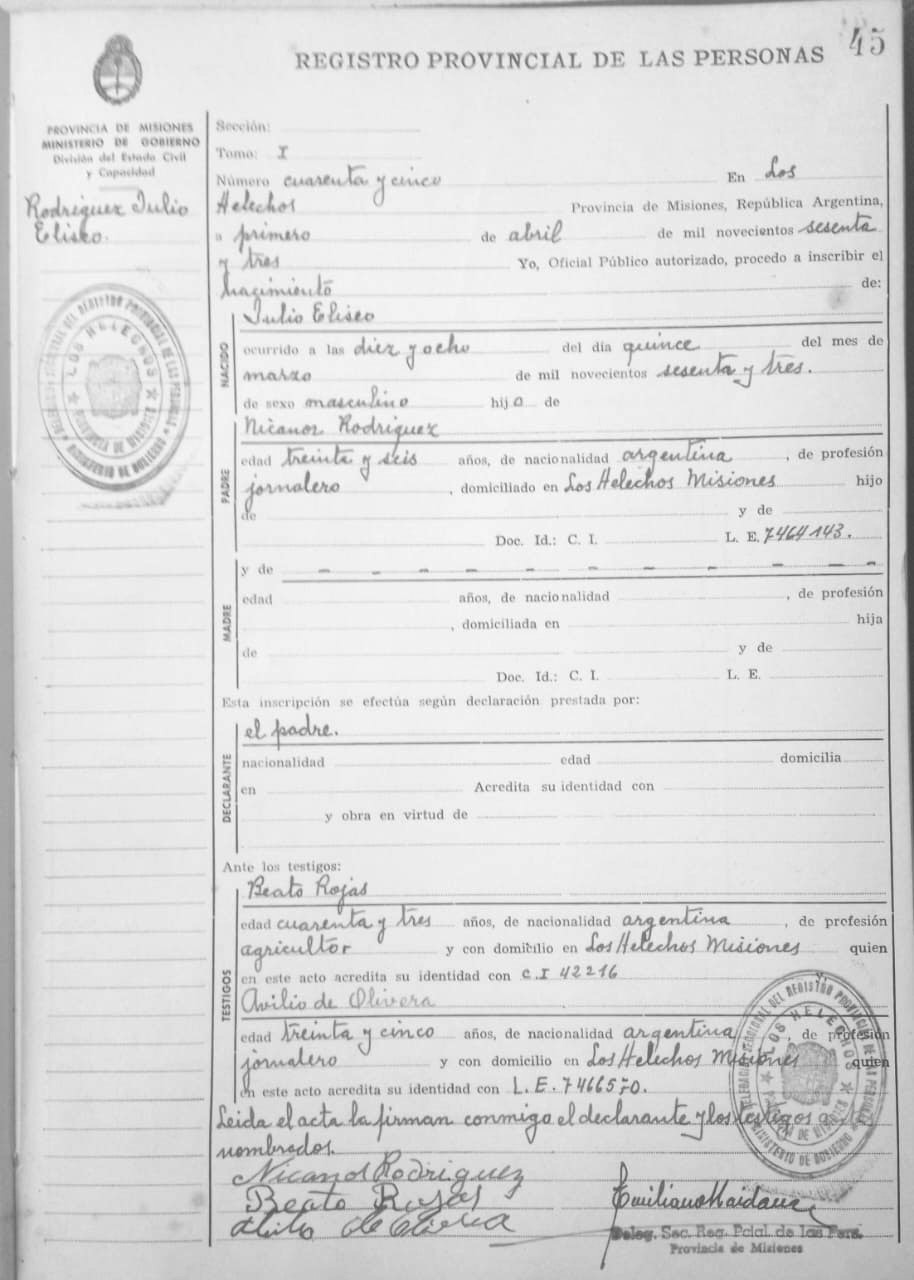 45
REGISTRO PROVINCIAL DE LAS PERSONAS
PROVINCIA DE MISIONES
MINISTERIO DE GOBIERNO
División del Estado Civil
y Capacidad
Rodriguez Julio
Eliseo.
Sección:
Tomo: I
Número cuarenta y cinco En Los
Helechos Provincia de Misiones, República Argentina,
a primero de abril de mil novecientos sesenta
y tres Yo, Oficial Público autorizado, procedo a inscribir el
nacimiento de:
NACIDO
Julio Eliseo
ocurrido a las diez y ocho del día quince del mes de
marzo de mil novecientos sesenta y tres.
de sexo masculino hijo de
PADRE
Nicanor Rodriguez
edad treinta y seis años, de nacionalidad argentina, de profesión
jornalero, domiciliado en Los Helechos Misiones hijo
de y de
Doc. Id.: C. I. L. E. 7464143.
MADRE
y de — — — — — — — — — — —
edad años, de nacionalidad , de profesión
, domiciliada en hija
de y de
Doc. Id.: C. I. L. E.
Esta inscripción se efectúa según declaración prestada por:
DECLARANTE
el padre.
nacionalidad edad domicilia
en Acredita su identidad con
y obra en virtud de
Ante los testigos:
TESTIGOS
Beato Rojas
edad cuarenta y tres años, de nacionalidad argentina, de profesión
agricultor y con domicilio en Los Helechos Misiones quien
en este acto acredita su identidad con C.I 42216
y,
Avilio de Olivera
edad treinta y cinco años, de nacionalidad argentina, de profesión
jornalero y con domicilio en Los Helechos Misiones quien
en este acto acredita su identidad con L.E. 7466570.
Leida el acta la firman conmigo el declarante y los testigos
nombrados.
Nicanor Rodriguez
Beato Rojas
de Olivera
Emiliano Maidana
Deleg. Sec. Reg. Pcial. de las Pers.
Provincia de Misiones
LOS HELECHOS
PROVINCIA DE MISIONES
MINISTERIO DE GOBIERNO
DELEGACION SECCIONAL DEL REGISTRO PROVINCIAL DE LAS PERSONAS
LOS HELECHOS
PROVINCIA DE MISIONES
MINISTERIO DE GOBIERNO